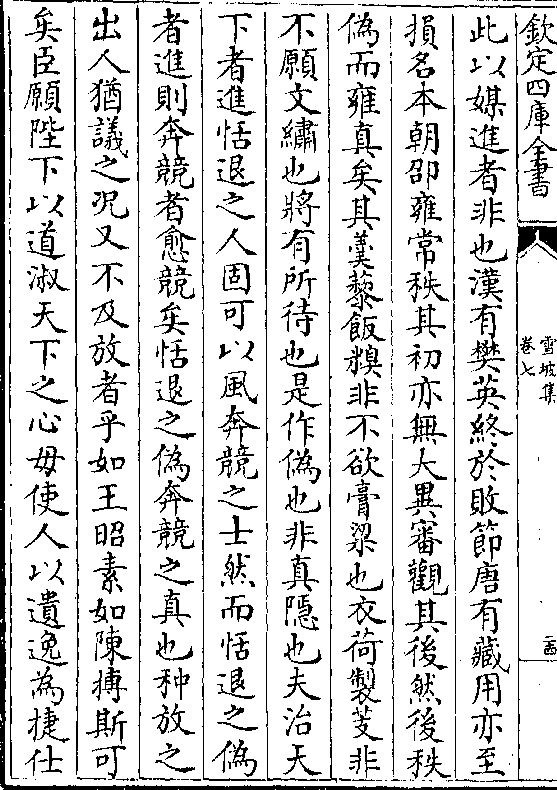 欽定四庫全書
雪坡集
卷七
二十四
此以媒進者非也漢有樊英終於敗節唐有藏用亦至
損名本朝邵雍常秩其初亦無大異審觀其後然後秩
偽而雍真矣其羮藜飯糗非不欲膏粱也衣荷製芰非
不願文繡也將有所待也是作偽也非真隠也夫治天
下者進恬退之人固可以風奔競之士然而恬退之偽
者進則奔競者愈競矣恬退之偽奔競之真也种放之
出人猶議之况又不及放者乎如王昭素如陳摶斯可
矣臣願陛下以道淑天下之心毋使人以遺逸為捷仕